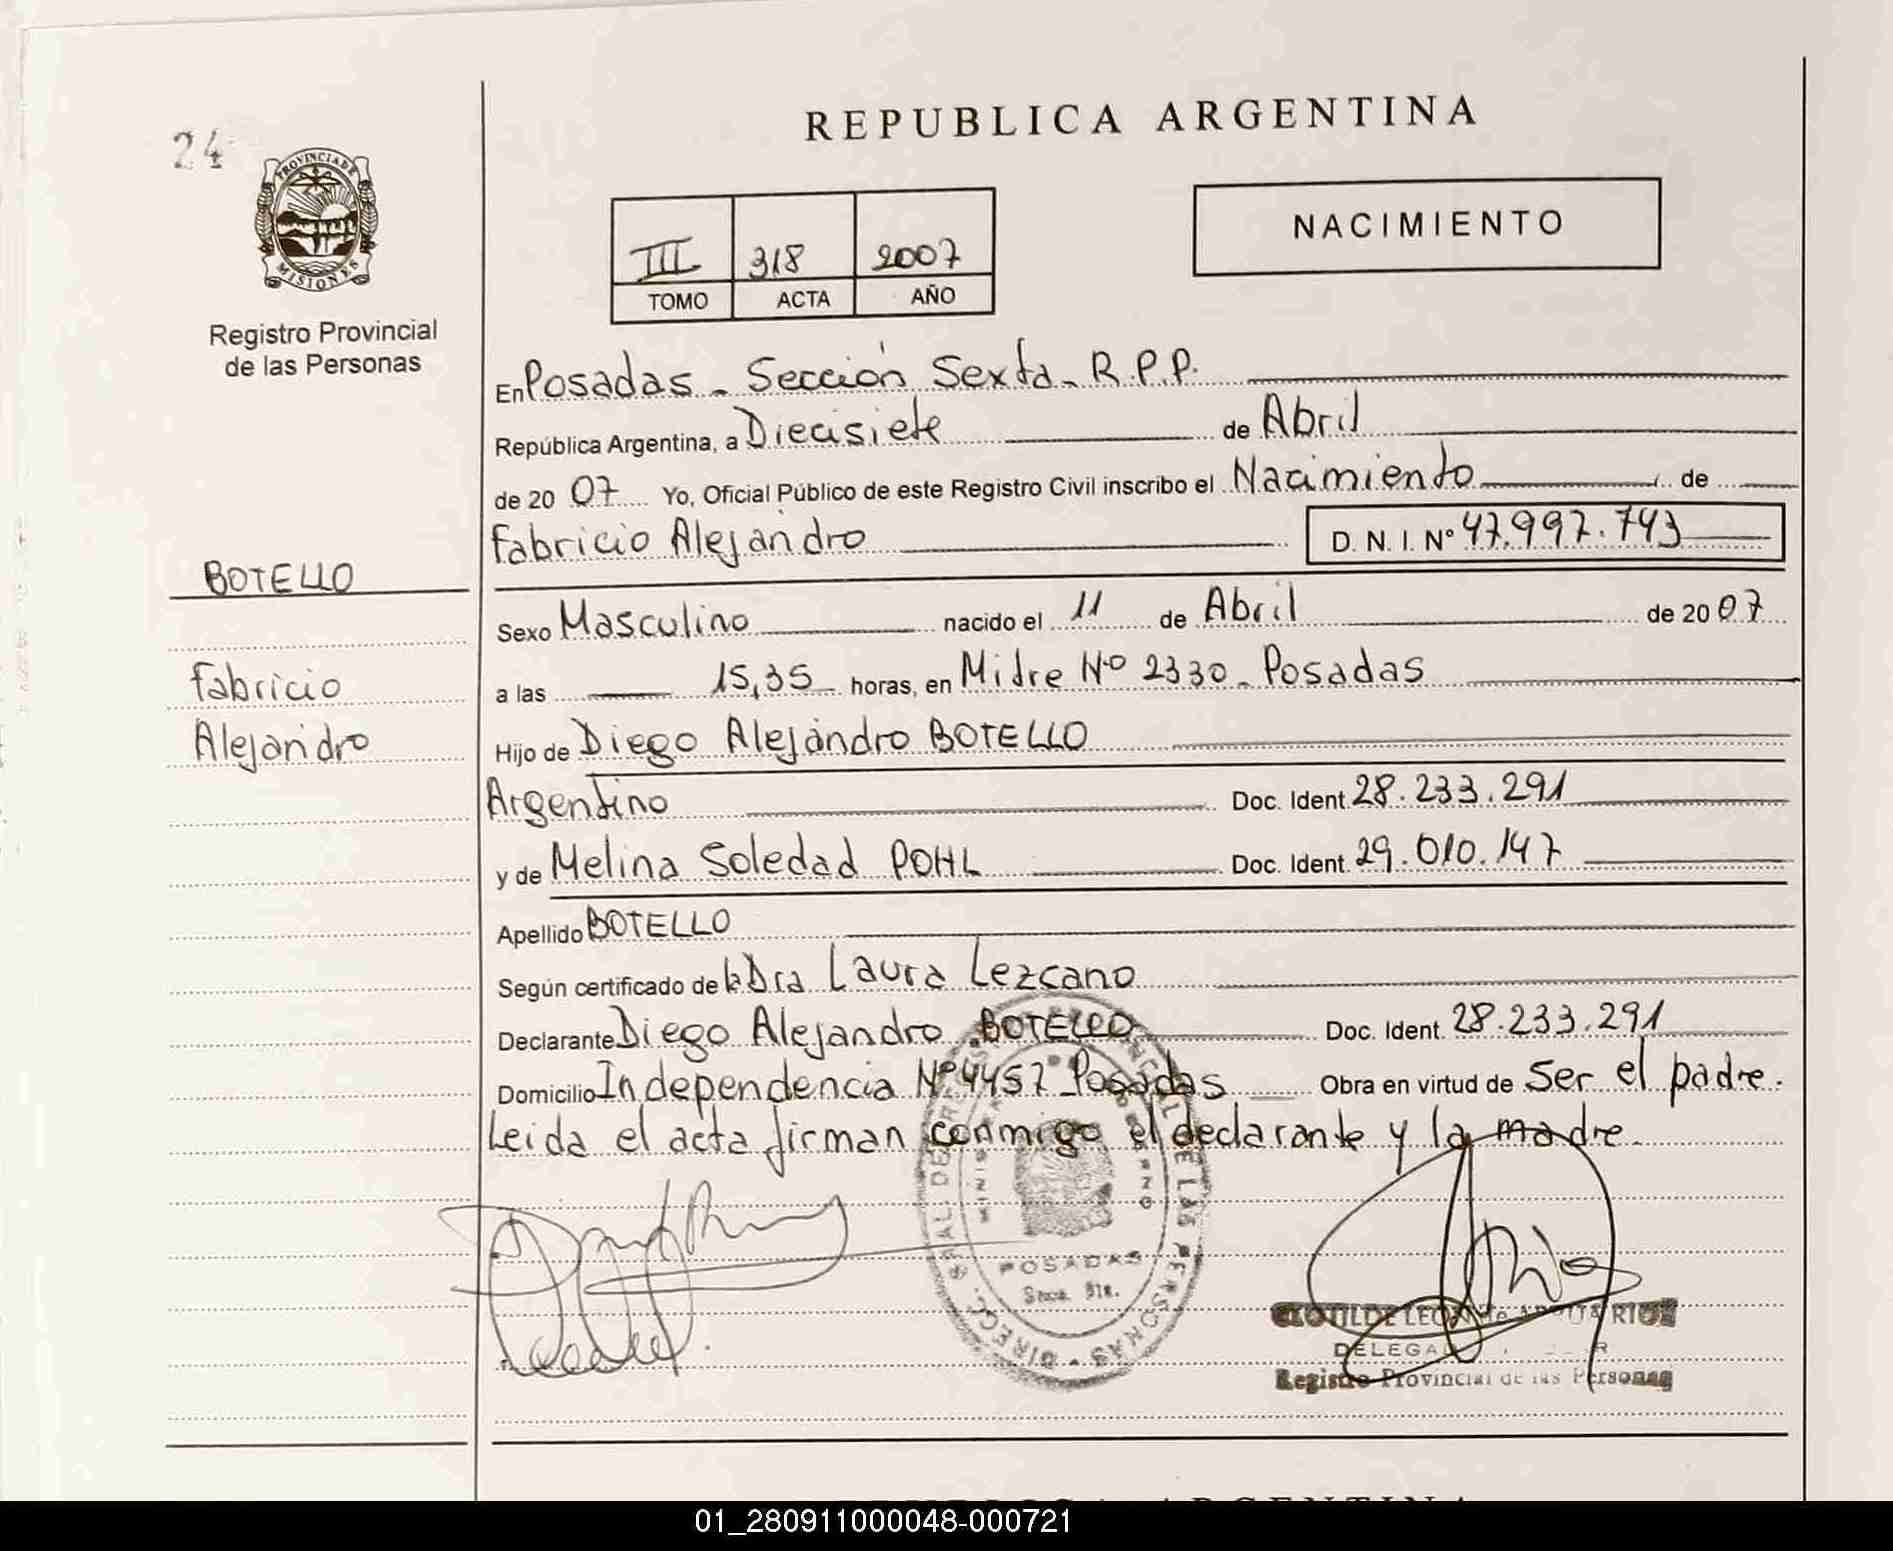 24
REPUBLICA ARGENTINA
PROVINCIA DE
MISIONES
Registro Provincial
de las Personas
III 318 2007
TOMO ACTA AÑO
NACIMIENTO
En Posadas - Sección Sexta - R.P.P.
República Argentina, a Diecisiete de Abril
de 20 07 Yo, Oficial Público de este Registro Civil inscribo el Nacimiento de
Fabricio Alejandro D. N. I. Nº 47.997.743
BOTELLO
Sexo Masculino nacido el 11 de Abril de 20 07
Fabricio
a las 15,35 horas, en Mitre Nº 2330 - Posadas
Alejandro
Hijo de Diego Alejandro BOTELLO
Argentino Doc. Ident. 28.233.291
y de Melina Soledad POHL Doc. Ident. 29.010.147
Apellido BOTELLO
Según certificado de la Dra Laura Lezcano
Declarante Diego Alejandro BOTELLO Doc. Ident. 28.233.291
Domicilio Independencia Nº 4457 Posadas Obra en virtud de Ser el padre.
Leida el acta firman conmigo el declarante y la madre.
POSADAS
Secc. 6ta.
CLOTILDE LEON de
Registro Provincial de las Personas
01_280911000048-000721